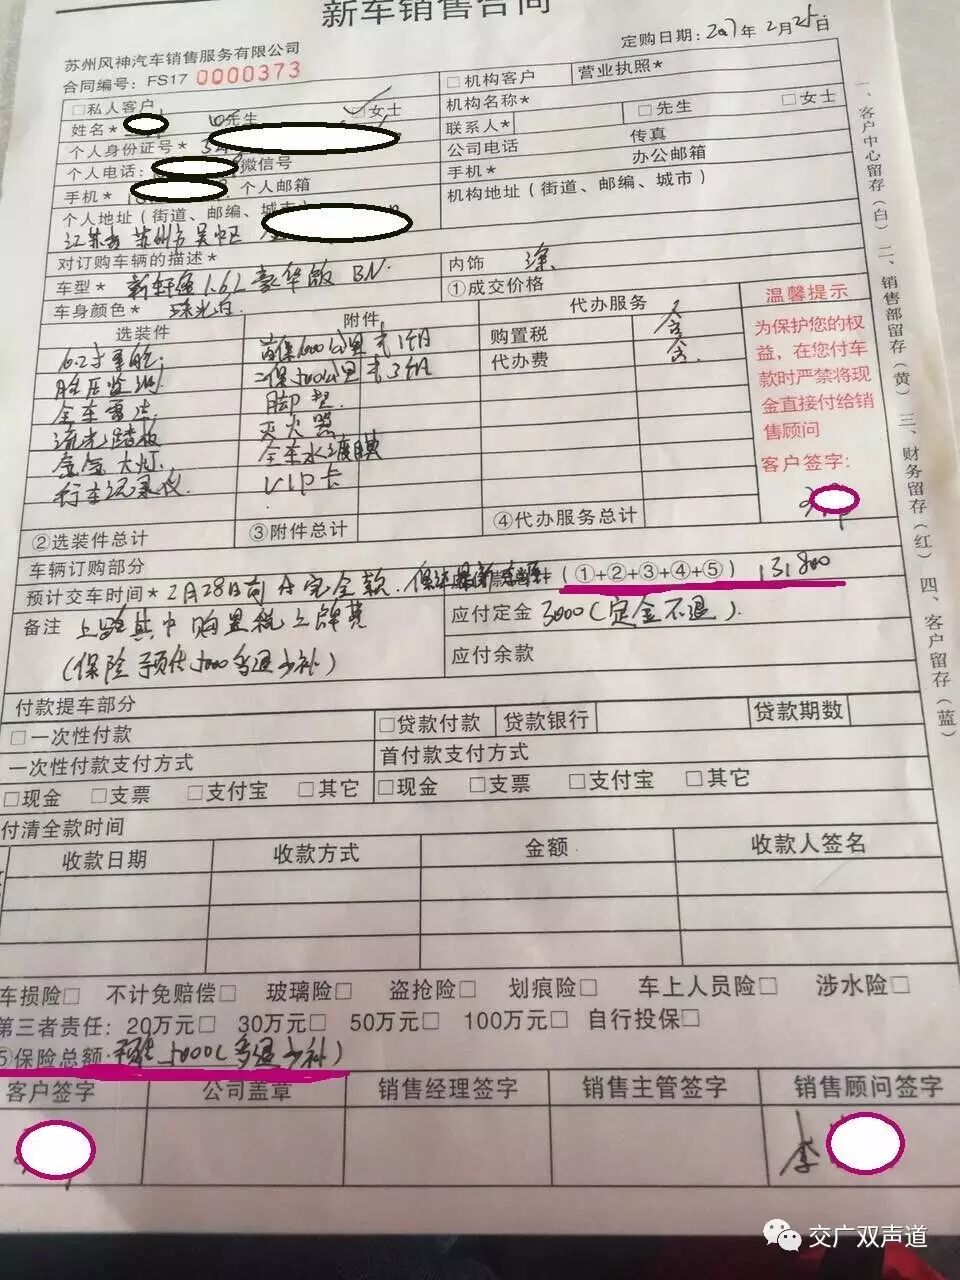 新车销售合同
苏州风神汽车销售服务有限公司
定购日期：2017年2月25日
合同编号：FS17 0000373
□私人客户 □女士
□机构客户 营业执照*
姓名* 先生
机构名称*
个人身份证号*
联系人* □先生 □女士
个人电话： 微信号
公司电话 传真
手机* 个人邮箱
手机* 办公邮箱
个人地址（街道、邮编、城市）
机构地址（街道、邮编、城市）
江苏省 苏州市吴中区
对订购车辆的描述*
车型* 新轩逸1.6L豪华版 BN.
内饰 深
车身颜色* 珠光白
①成交价格
选装件 附件 代办服务
购置税 含
代办费 含
首保 公里或1个月
胎压监测
二保5000公里或3个月
全车雷达
脚垫
流光踏板
灭火器
氙气大灯
全车水渡膜
行车记录仪
VIP卡
温馨提示
为保护您的权益，在您付车款时严禁将现金直接付给销售顾问
客户签字：
②选装件总计 ③附件总计 ④代办服务总计
车辆订购部分
（①+②+③+④+⑤） 131800
预计交车时间* 2月28日前 付完全款.
应付定金 3000（定金不退）.
备注 上路其中购置税上牌费
（保险预估5000多退少补）
应付余款
付款提车部分
□一次性付款 □贷款付款 贷款银行 贷款期数
一次性付款支付方式 首付款支付方式
□现金 □支票 □支付宝 □其它 □现金 □支票 □支付宝 □其它
付清全款时间
收款日期 收款方式 金额 收款人签名
车损险□ 不计免赔偿□ 玻璃险□ 盗抢险□ 划痕险□ 车上人员险□ 涉水险□
第三者责任：20万元□ 30万元□ 50万元□ 100万元□ 自行投保□
⑤保险总额：预估5000（多退少补）
客户签字 公司盖章 销售经理签字 销售主管签字 销售顾问签字
李
一、客户中心留存（白）二、销售部留存（黄）三、财务留存（红）四、客户留存（蓝）
交广双声道